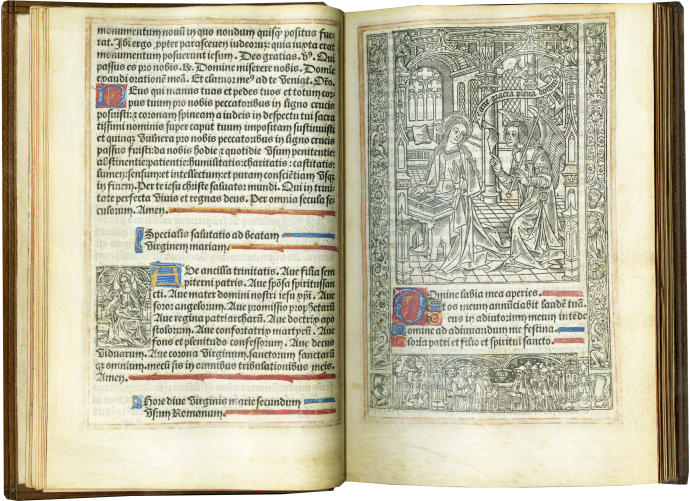 monumentum nouū in quo nondum quisq̄ positus fue
rat. Ibi ergo ꝓpter parasceuen iudeorū: quia iuxta erat
monumentum posuerunt iesum. Deo gratias. Ꝟ. Qui
passus es pro nobis. ℟. Domine miserere nobis. Domīe
exaudi orationē meā. Et clamor me⁹ ad te veniat. Oro.
DEus qui manus tuas et pedes tuos et totum cor
pus tuum pro nobis peccatoribus in ligno crucis
posuisti: ⁊ coronam spineam a iudeis in despectu tui sacra
tissimi nominis super caput tuum impositam sustinuisti
et quinqȝ vulnera pro nobis peccatoribus in ligno crucis
passus fuisti: da nobis hodie ⁊ quotidie vsum penitentie:
abstinentie: patientie: humilitatis: charitatis: castitatis:
lumen: sensum: et intellectum: et puram consciētiam vsqȝ
in finem. Per te iesu christe saluator mundi. Qui in trini
tate perfecta viuis et regnas deus. Per omnia secula se
culorum. Amen.
Specialis salutatio ad beatam
Virginem mariam.
AUe ancilla trinitatis. Aue filia sem
piterni patris. Aue spōsa spiritussan
cti. Aue mater domini nostri iesu xp̄i. Aue
soror angelorum. Aue promissio ꝓphetarū
Aue regina patriarcharū. Aue doctrix apo
stolorum. Aue confortatrix martyrū. Aue
fons et plenitudo confessorum. Aue decus
viduarum. Aue corona virginum, sanctorum sanctarū
qȝ omnium. mecū sis in omnibus tribulationibus meis.
Amen.
Hore diue virginis marie secundum
vsum Romanum.
aue gracia plena dominus
DOmine labia mea aperies.
Et os meum annūciabit laudē tuā.
Deus in adiutorium meum intēde
Domine ad adiuuandum me festina.
Gloria patri et filio et spiritui sancto.